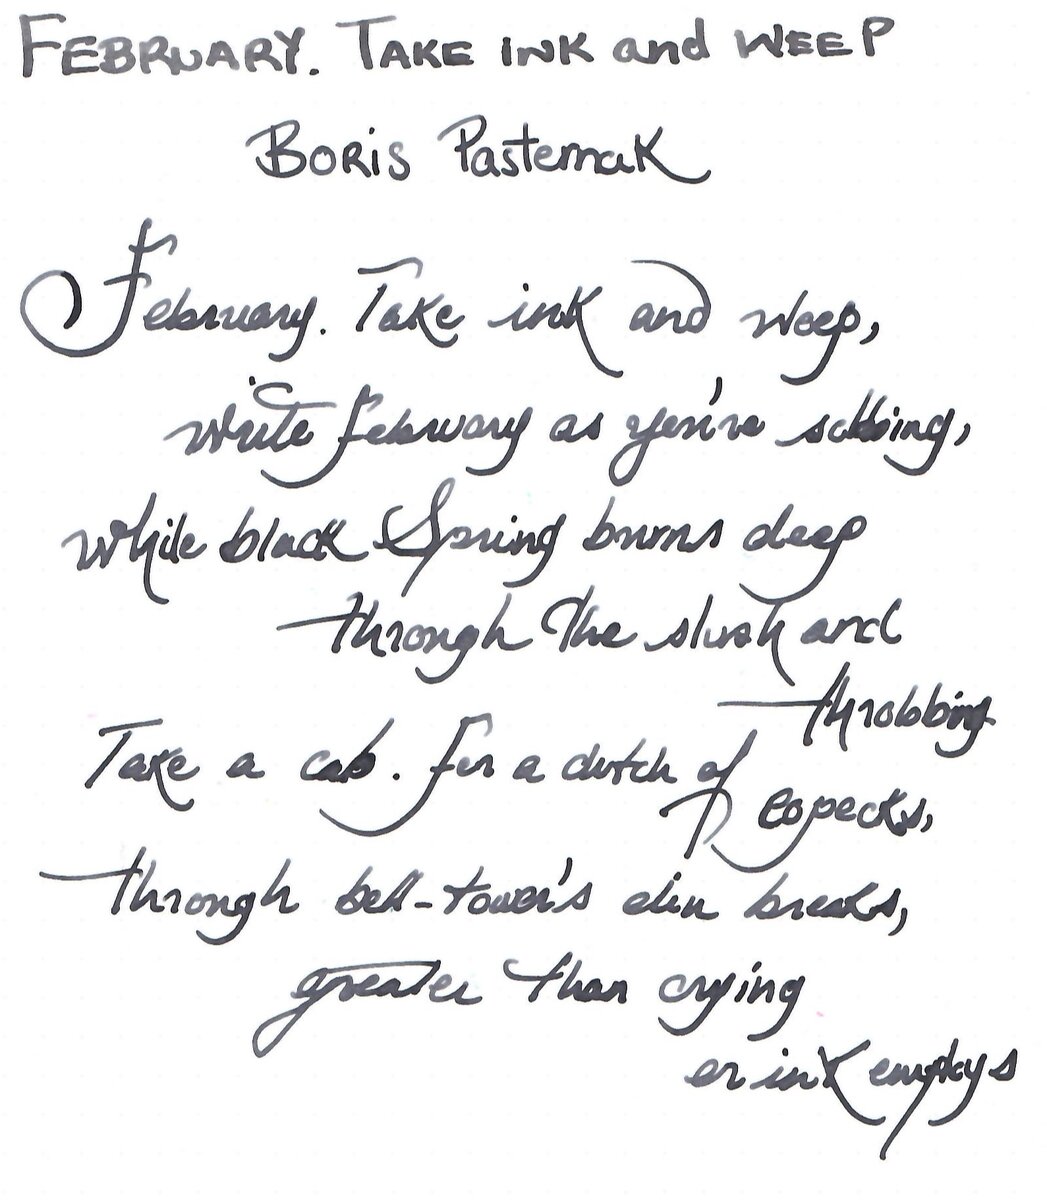 FEBRUARY. TAKE INK and WEEP
BORIS Pasternak
February. Take ink and weep,
write February as you're sobbing,
while black Spring burns deep
through the slush and
throbbing
Take a cab. For a clutch of
copecks,
through bell-tower's din breaks,
greater than crying
or ink employs